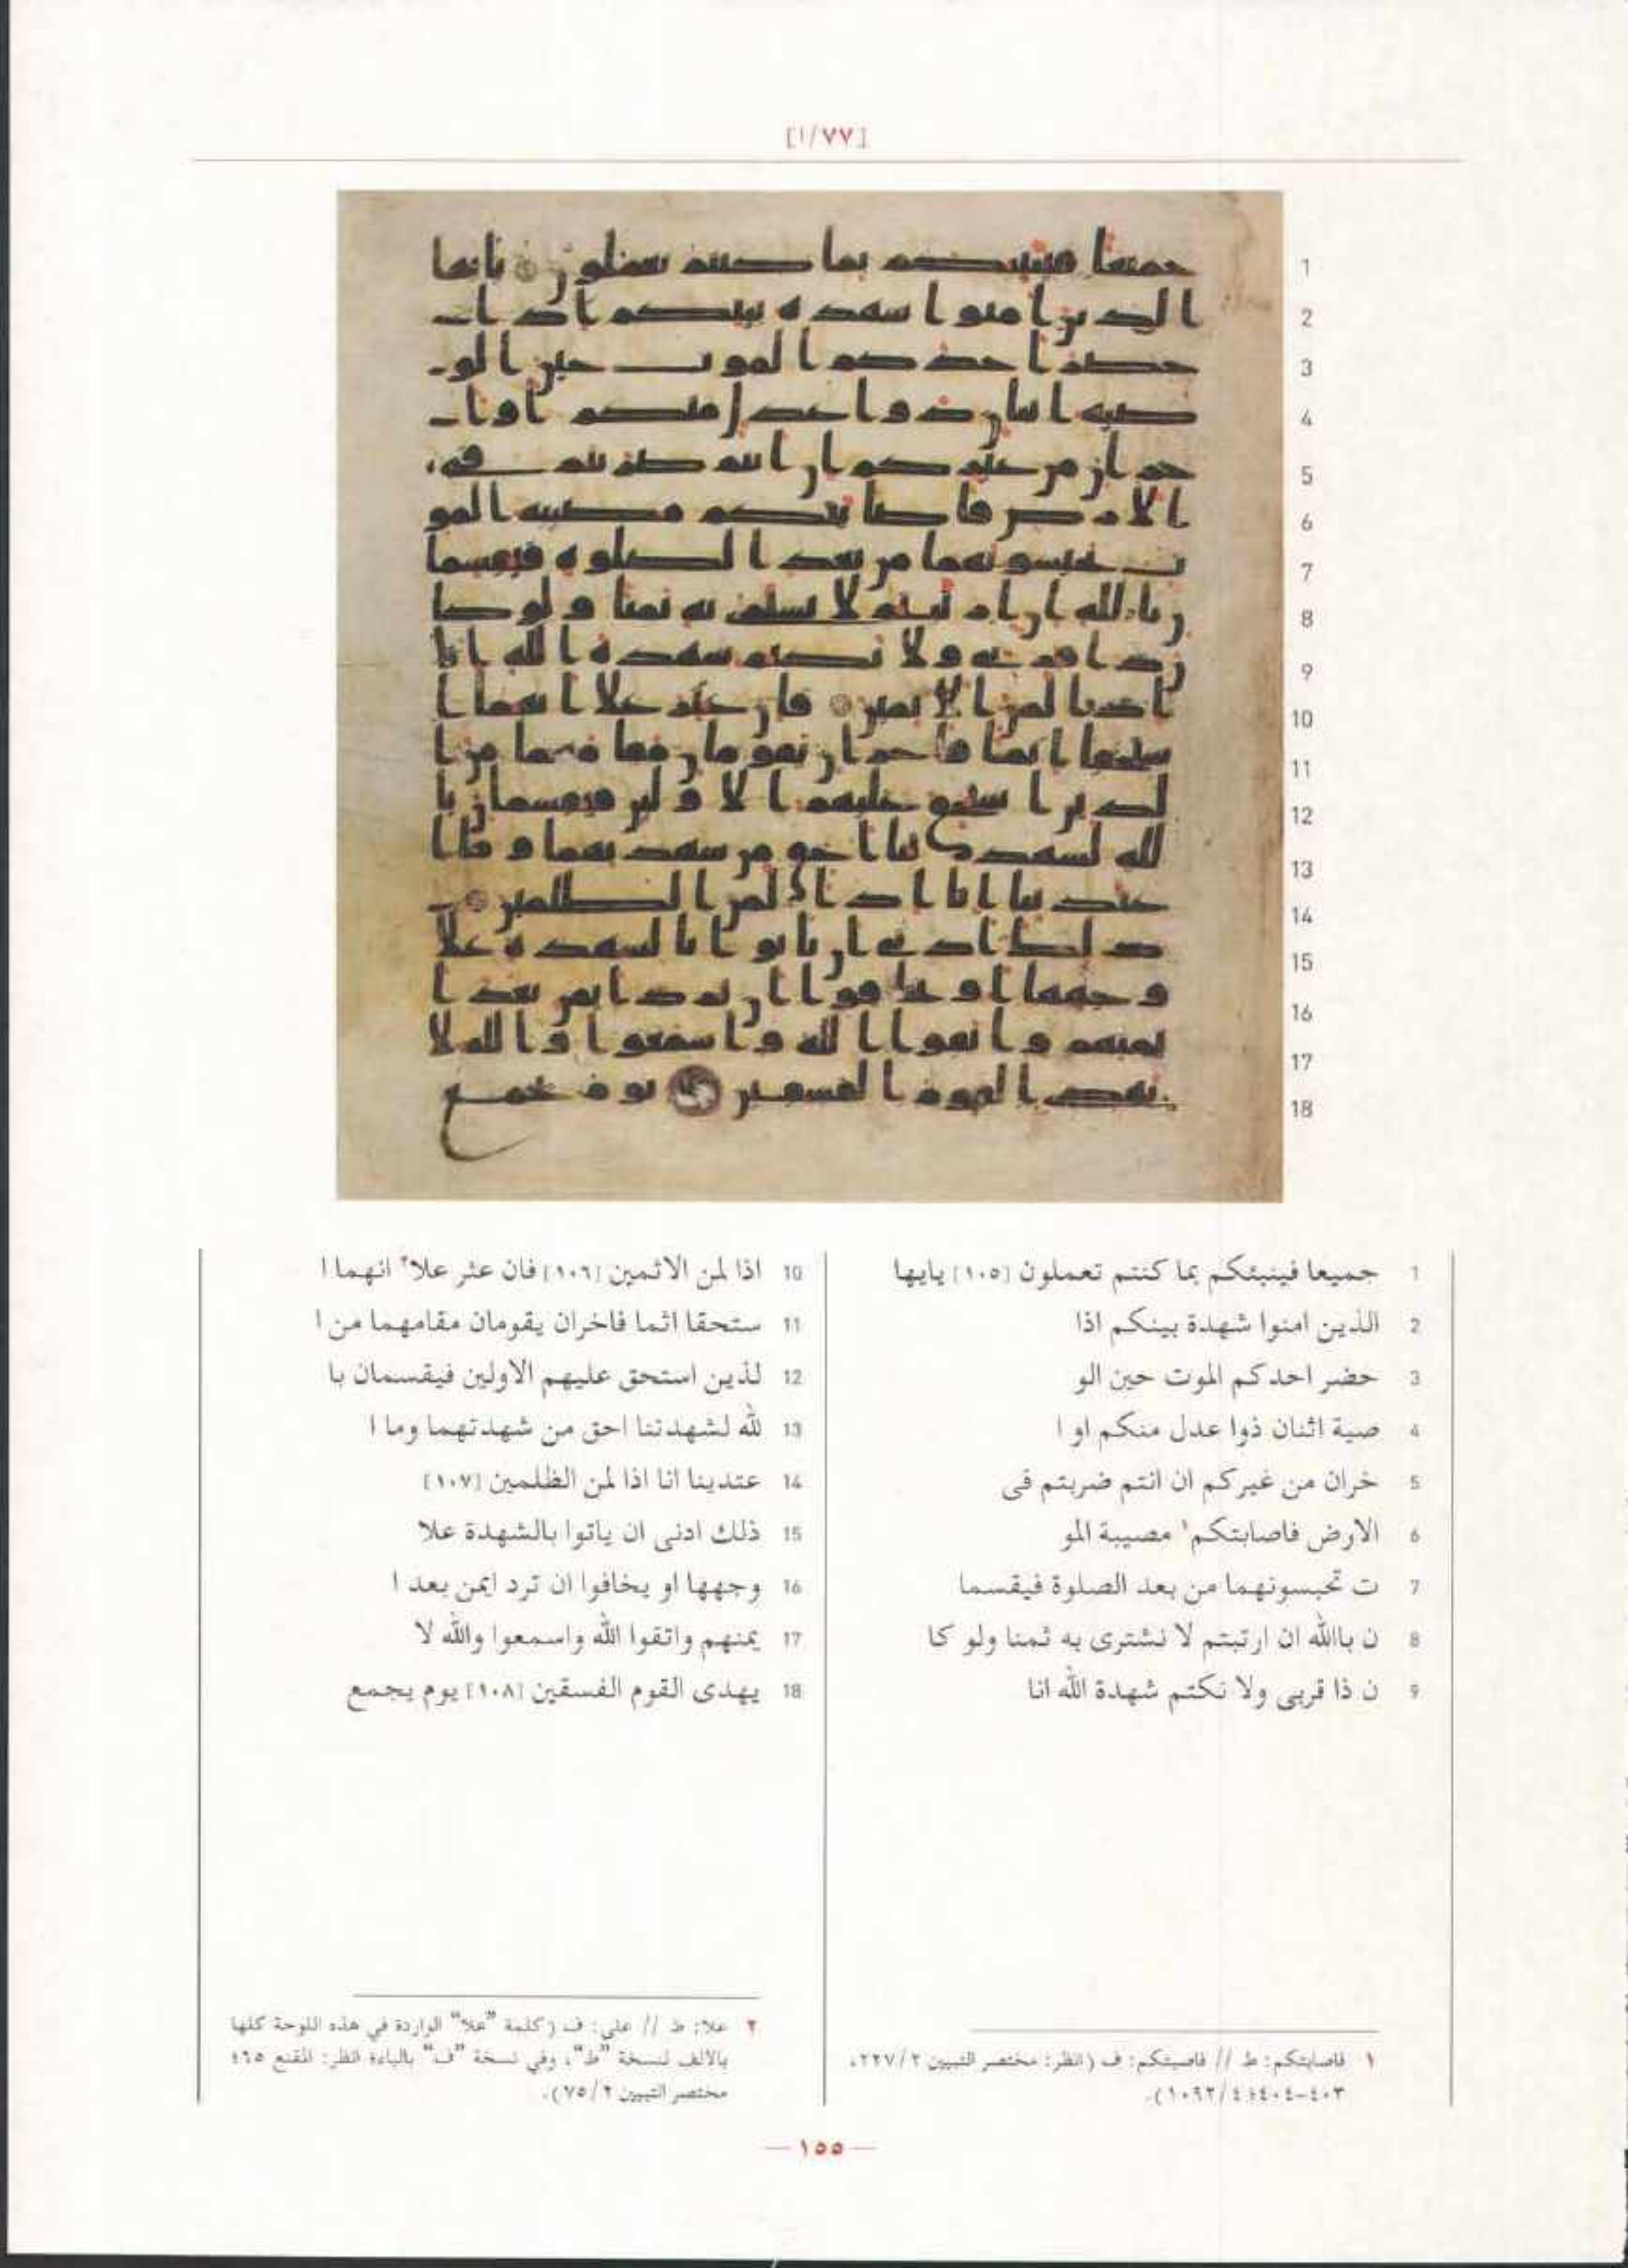 [١/٧٧]
1
2
3
4
5
6
7
8
9
10
11
12
13
14
15
16
17
18
1 جميعا فينبئكم بما كنتم تعملون [١٠٥] يايها
2 الذين امنوا شهدة بينكم اذا
3 حضر احدكم الموت حين الو
4 صية اثنان ذوا عدل منكم او ا
5 خران من غيركم ان انتم ضربتم فى
6 الارض فاصابتكم١ مصيبة المو
7 ت تحبسونهما من بعد الصلوة فيقسما
8 ن باالله ان ارتبتم لا نشترى به ثمنا ولو كا
9 ن ذا قربى ولا نكتم شهدة الله انا
10 اذا لمن الاثمين [١٠٦] فان عثر علا٢ انهما ا
11 ستحقا اثما فاخران يقومان مقامهما من ا
12 لذين استحق عليهم الاولين فيقسمان با
13 لله لشهدتنا احق من شهدتهما وما ا
14 عتدينا انا اذا لمن الظلمين [١٠٧]
15 ذلك ادنى ان ياتوا بالشهدة علا
16 وجهها او يخافوا ان ترد ايمن بعد ا
17 يمنهم واتقوا الله واسمعوا والله لا
18 يهدى القوم الفسقين [١٠٨] يوم يجمع
١ فاصابتكم: ط // فاصبتكم: ف (انظر: مختصر التبيين ٢/٢٢٧،
٤٠٣-٤٠٤؛ ٤/١٠٩٢).
٢ علا: ط // على: ف (كلمة "علا" الواردة في هذه اللوحة كلها
بالالف لنسخة "ط"، وفي نسخة "ف" بالياء؛ انظر: المقنع ٦٥؛
مختصر التبيين ٢/٧٥).
— ١٥٥ —